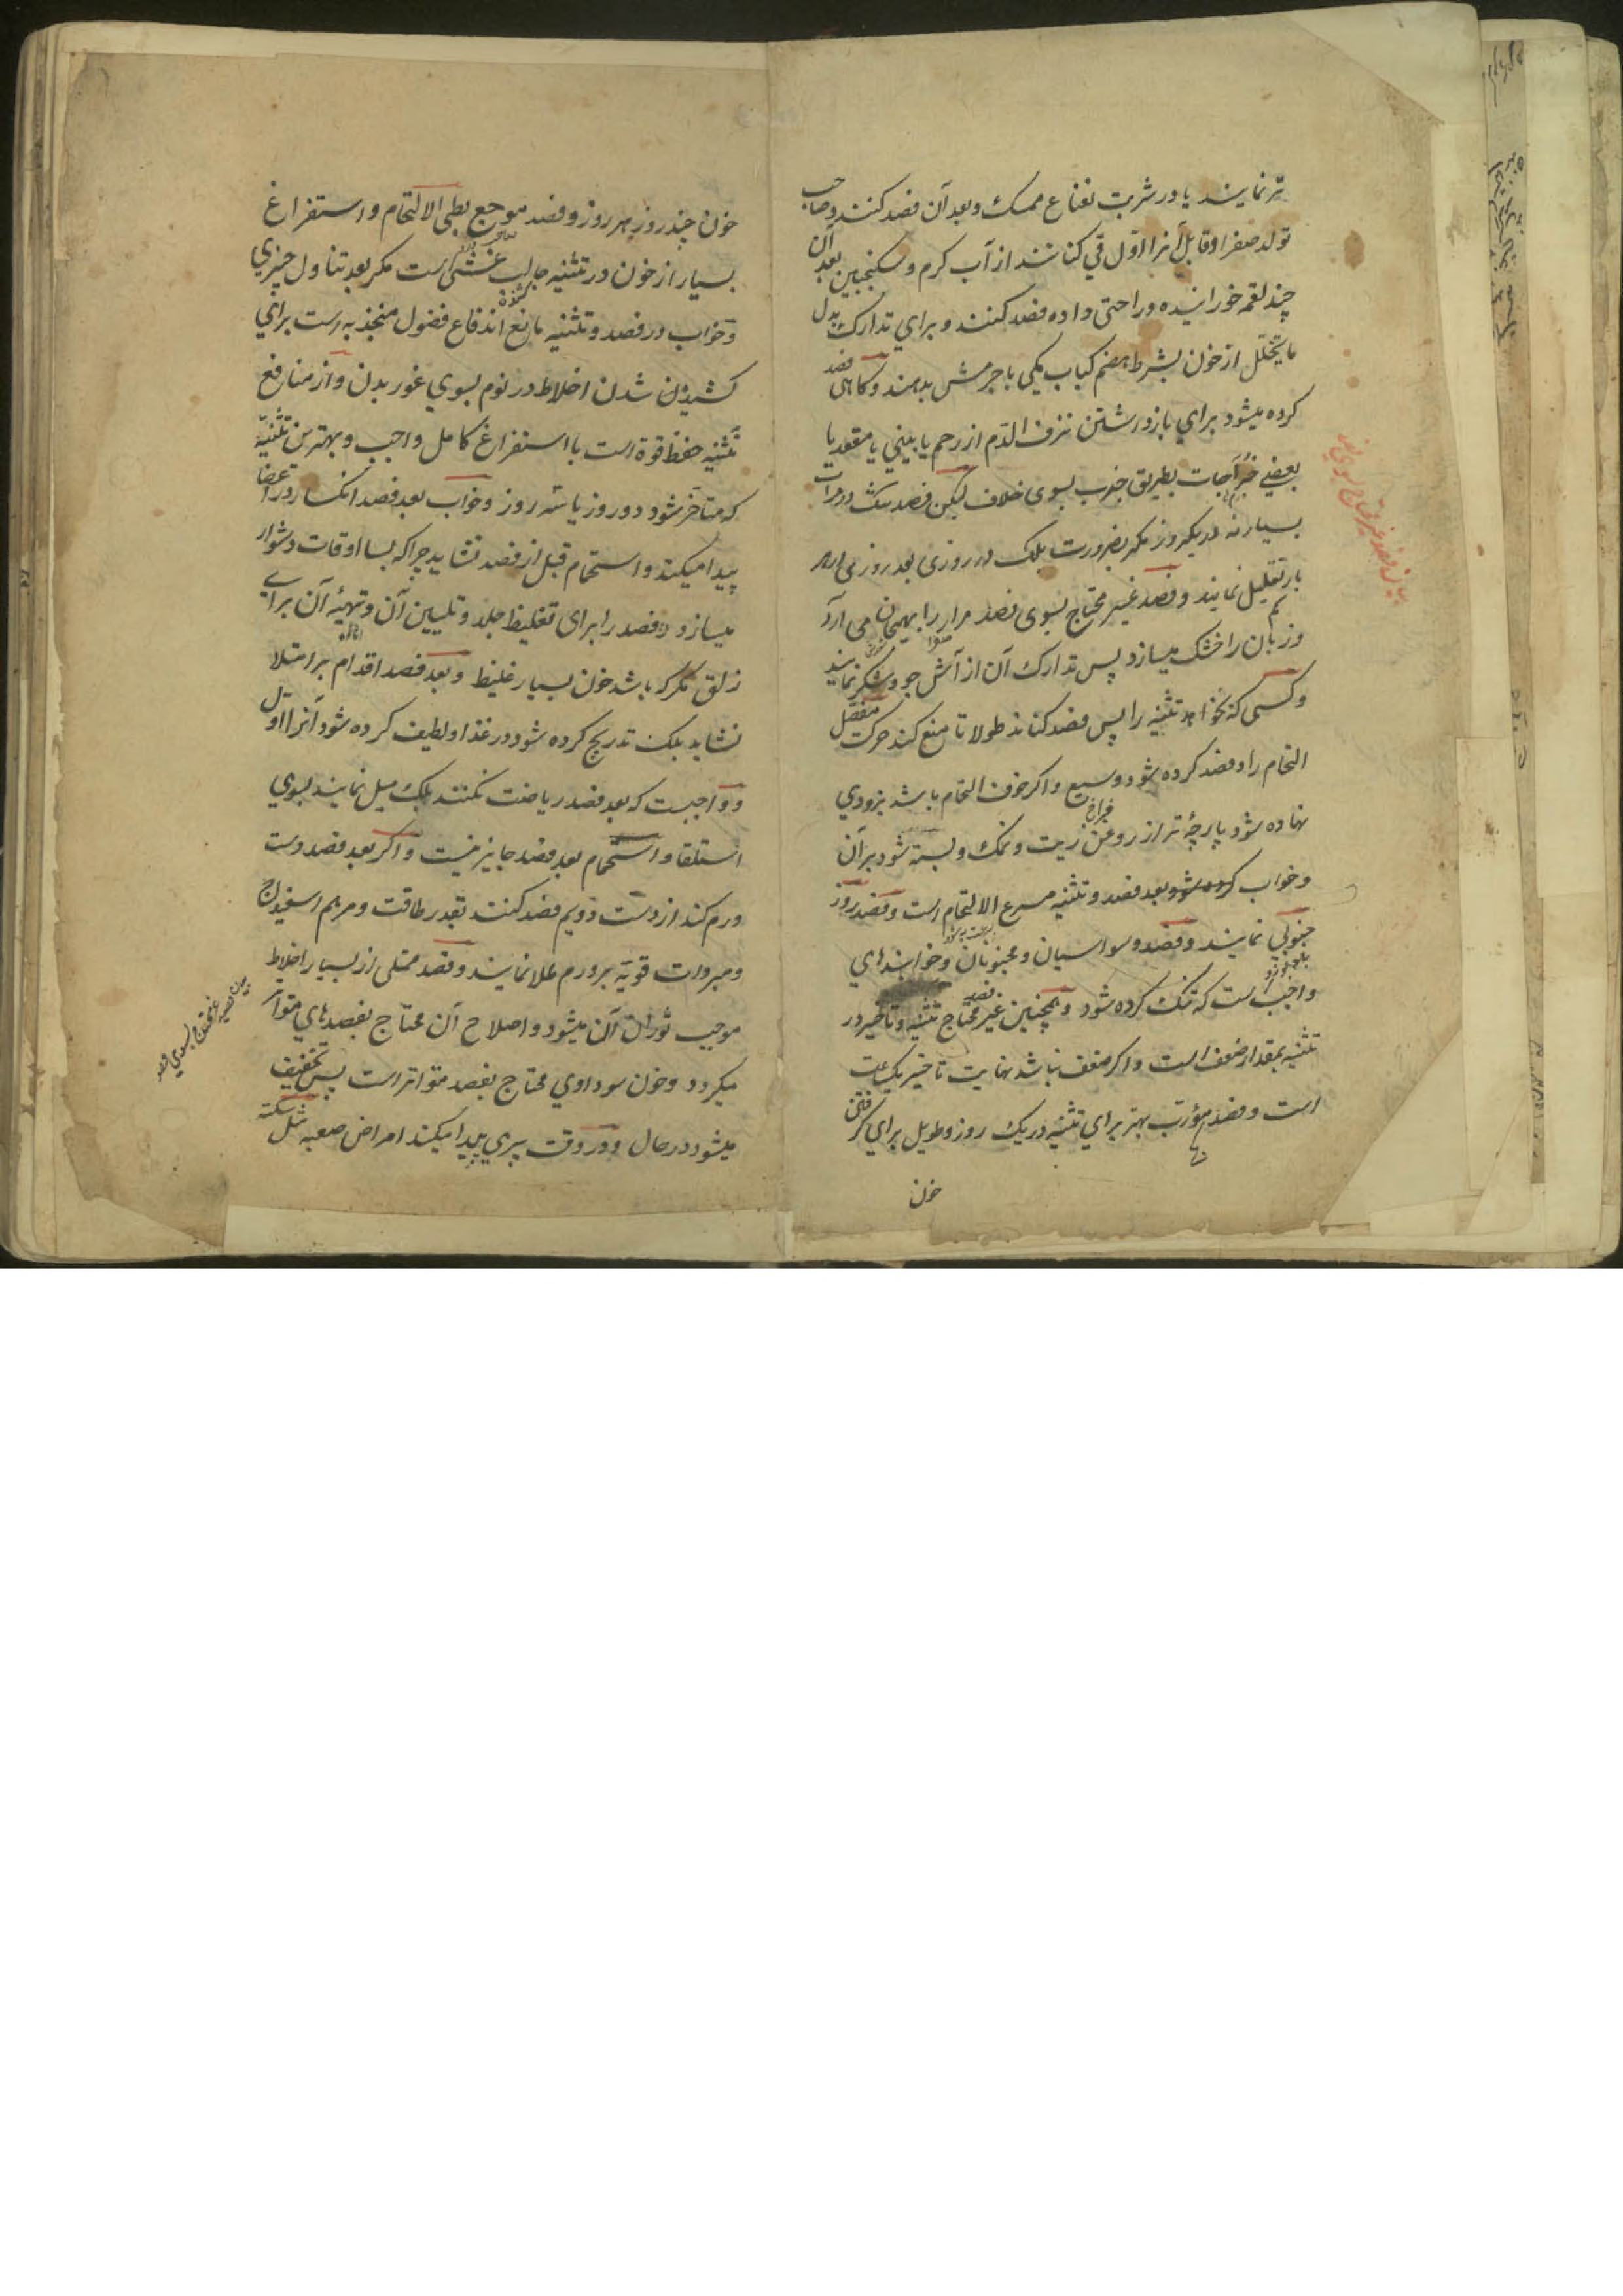 تر نمایند یا در شربت نعناع ممسک و بعد آن فصد کنند و صاحب
تولد صفرا و قابل آنرا اول قی کنانند از آب کرم و سکنجبین بعد آن
چند لقمه خورانیده و راحتی داده فصد کنند و برای تدارک بدل
ما یتحلل از خون بشرط هضم کباب یکی با جرمش بدهند و کاهی فصد
کرده میشود برای بازداشتن نزف الدم از رحم یا بینی یا مقعد یا
بعضی خراجات بطریق جذب بسوی خلاف لیکن فصد تنک در مرات
بسیار نه در یکروز مکر بضرورت بلک در روزی بعد روزی و هر
بار تقلیل نمایند و فصد غیر محتاج بسوی فصد مرار را بهیجان می آرد
و زبان را خشک میسازد پس تدارک آن از آش جو و شکر نمایند
و کسی که بخواهد تثنیه را پس فصد کناند طولا تا منع کند حرکت مفصل
التحام را و فصد کرده شود وسیع و اکر خوف التحام باشد بزودی
فراخ
نهاده شود پارچهٔ تر از روغن زیت و نمک و بسته شود بر آن
و خواب کرده شود بعد فصد و تثنیه مسرع الالتحام است و فصد بروز
جنوبی نمایند و فصد وسواسیان و مجنونان و خوابندهای
واجب است که تنک کرده شود و همچنین غیر محتاج تثنیه و تاخیر در
فصد
تثنیه بمقدار ضعف است و اکر ضعف نباشد نهایت تاخیر یک ساعت
است و فصد مؤرب بهتر برای تثنیه در یک روز و طویل برای کرفتن
خون
خون چند روز هر روز و فصد موجع بطی الالتحام و استفراغ
بسیار از خون در تثنیه جالب غشی است مکر بعد تناول چیزی
و خواب در فصد و تثنیه مانع اندفاع فضول منجذبه است برای
کشیدن شدن اخلاط در نوم بسوی غور بدن و از منافع
تثنیه حفظ قوة است با استفراغ کامل واجب و بهترین تثنیه
که متاخر شود دو روز یا سه روز و خواب بعد فصد انکسار در اعضا
پیدا میکند و استحمام قبل از فصد نشاید چرا که بسا اوقات دشوار
میسازد فصد را برای تغلیظ جلد و تلیین آن و تهیهٔ آن برای
زلق مکر که باشد خون بسیار غلیظ و بعد فصد اقدام بر امتلا
نشاید بلک تدریج کرده شود در غذا و لطیف کرده شود آنرا اول
و واجبست که بعد فصد ریاضت نکنند بلک میل نمایند بسوی
استلقا و استحمام بعد فصد جایز نیست و اکر بعد فصد دست
ورم کند از دست دویم فصد کنند بقدر طاقت و مرهم اسفیداج
و مبردات قویة بر ورم طلا نمایند و فصد ممتلی از بسیار اخلاط
موجب ثوران آن میشود و اصلاح آن محتاج بفصدهای متواتر
میکردد و خون سوداوی محتاج بفصد متواتر است پس تخفیف
میشود در حال و در وقت پیری پیدا میکند امراض صعبه مثل سکته